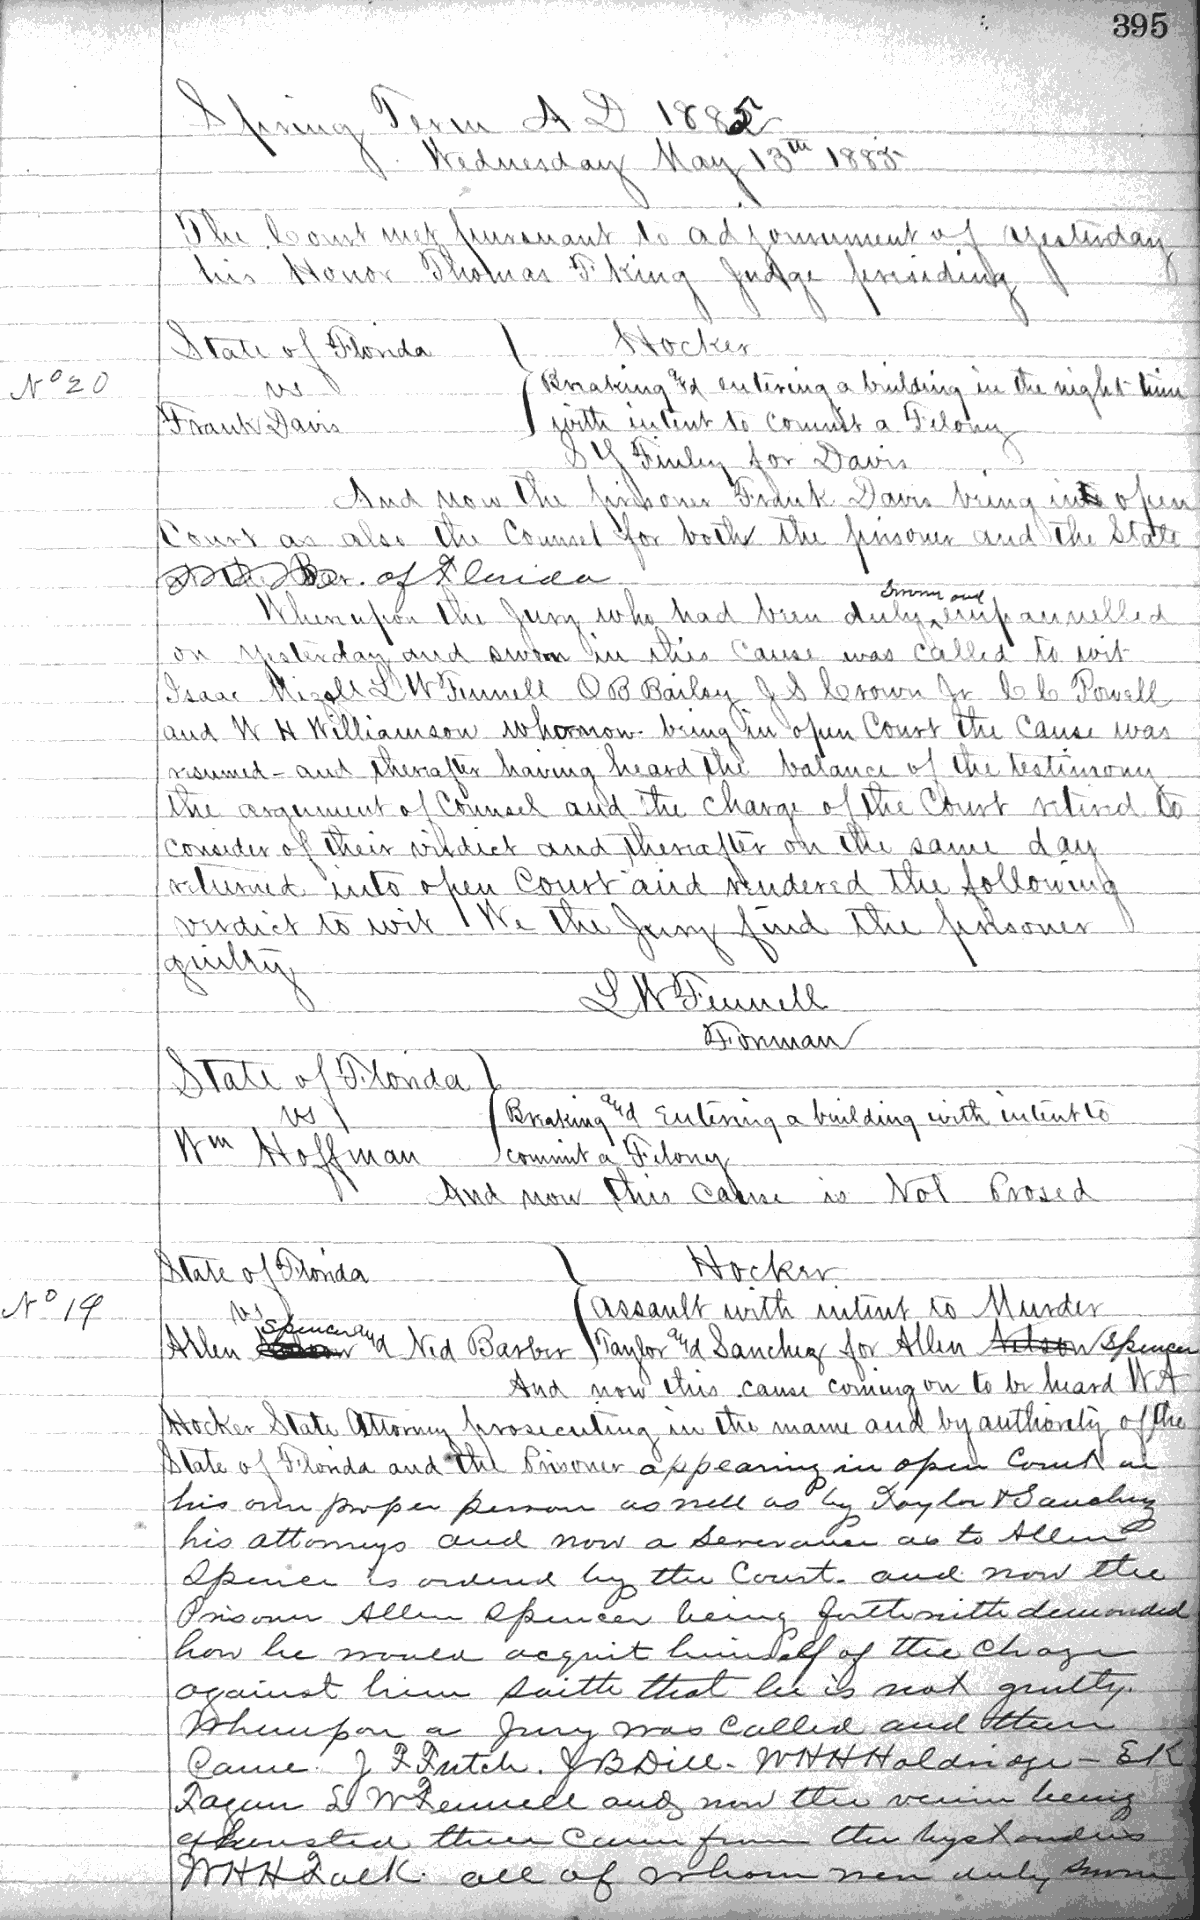 395
Spring Term A D 1885
Wednesday May 13th 1885
The Court met pursuant to adjournment of yesterday
his Honor Thomas F King Judge presiding
State of Florida Hocker
No 20 vs Breaking and entering a building in the night time
Frank Davis with intent to commit a Felony
S Y Finley for Davis
And now the prisoner Frank Davis being in open
Court as also the Counsel for both the prisoner and the State
of Florida
Whereupon the Jury who had been duly sworn and empannelled
on yesterday and sworn in this cause was called to wit
Isaac Mizell L W Fennell O B Bailey J S Crown Jr C C Powell
and W H Williamson who now being in open Court the cause was
resumed - and thereafter having heard the balance of the testimony
the argument of Counsel and the charge of the Court retired to
consider of their verdict and thereafter on the same day
returned into open Court and rendered the following
verdict to wit We the Jury find the prisoner
guilty
L W Fennell
Forman
State of Florida
vs Breaking and Entering a building with intent to
Wm Hoffman commit a Felony
And now this cause is Nol Prosed
State of Florida Hocker
No 19 vs assault with intent to Murder
Allen Spencer and Ned Barber Taylor and Sanchez for Allen Nelson Spencer
And now this cause coming on to be heard W A
Hocker State Attorney prosecuting in the name and by authority of the
State of Florida and the Prisoner appearing in open Court in
his own proper person as well as by Taylor & Sanchez
his attorneys and now a Severance as to Allen
Spencer is ordered by the Court. and now the
Prisoner Allen Spencer being forthwith demanded
how he would acquit himself of the Charge
against him saith that he is not guilty.
Whereupon a Jury was called and then
Came. J F Futch. J B Dill. W H H Holdridge - E K
Fagan L W Fennell and now the venire being
exhausted then Came from the bystanders
W H H Falk. all of whom were duly sworn